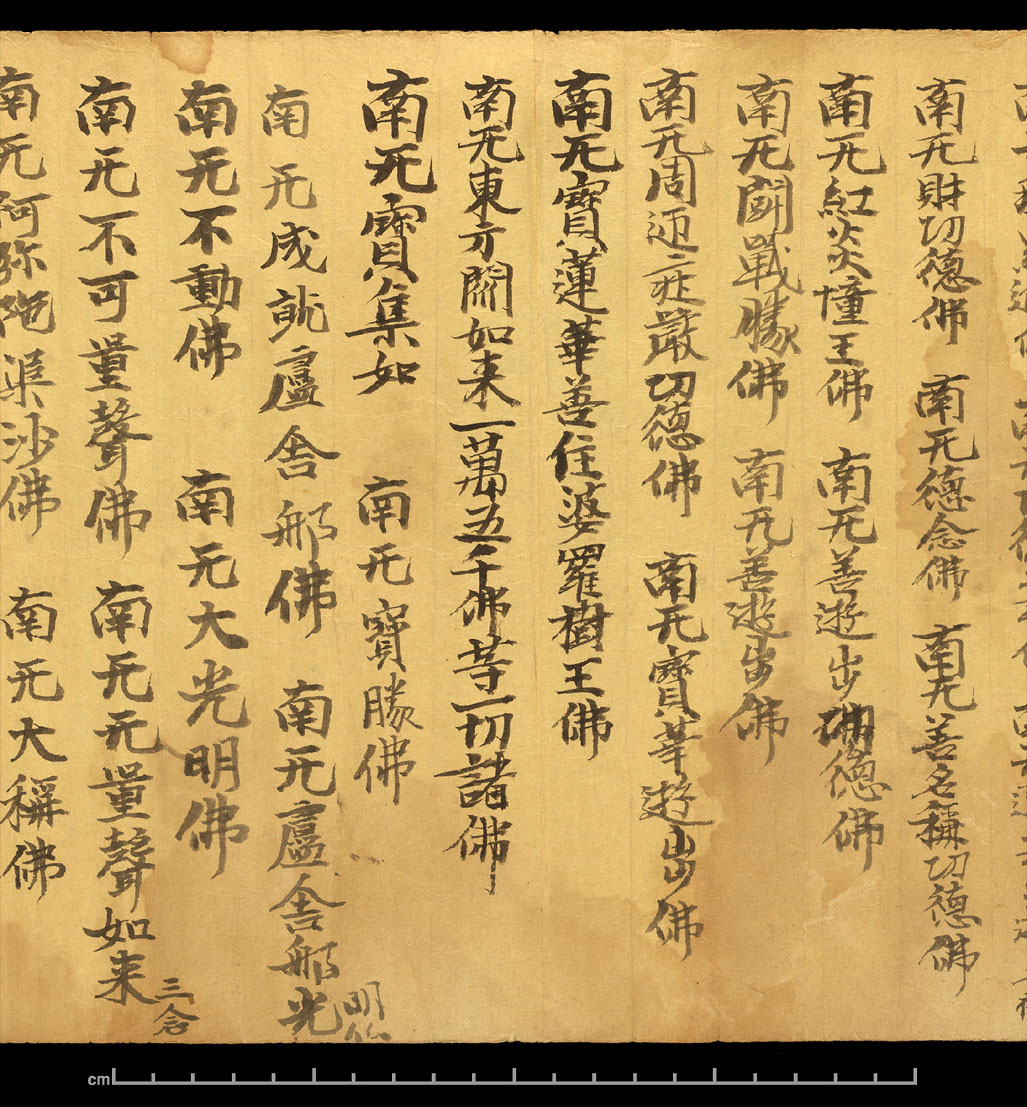 南无財切德佛 南无德念佛 南无善名稱切德佛
南无紅炎憧王佛 南无善遊步佛德佛
南无鬪戰勝佛 南无善遊步佛
南无周迊庄嚴切德佛 南无寶華遊步佛
南无寶蓮華善住娑羅樹王佛
南无東方閦如来一萬五千佛等一切諸佛
南无寶集如 南无寳勝佛
南无成就盧舍那佛 南无盧舍那光
明佛
南无不動佛 南无大光明佛
三念
南无不可量聲佛 南无无量聲如来
南无阿弥陁渠沙佛 南无大稱佛